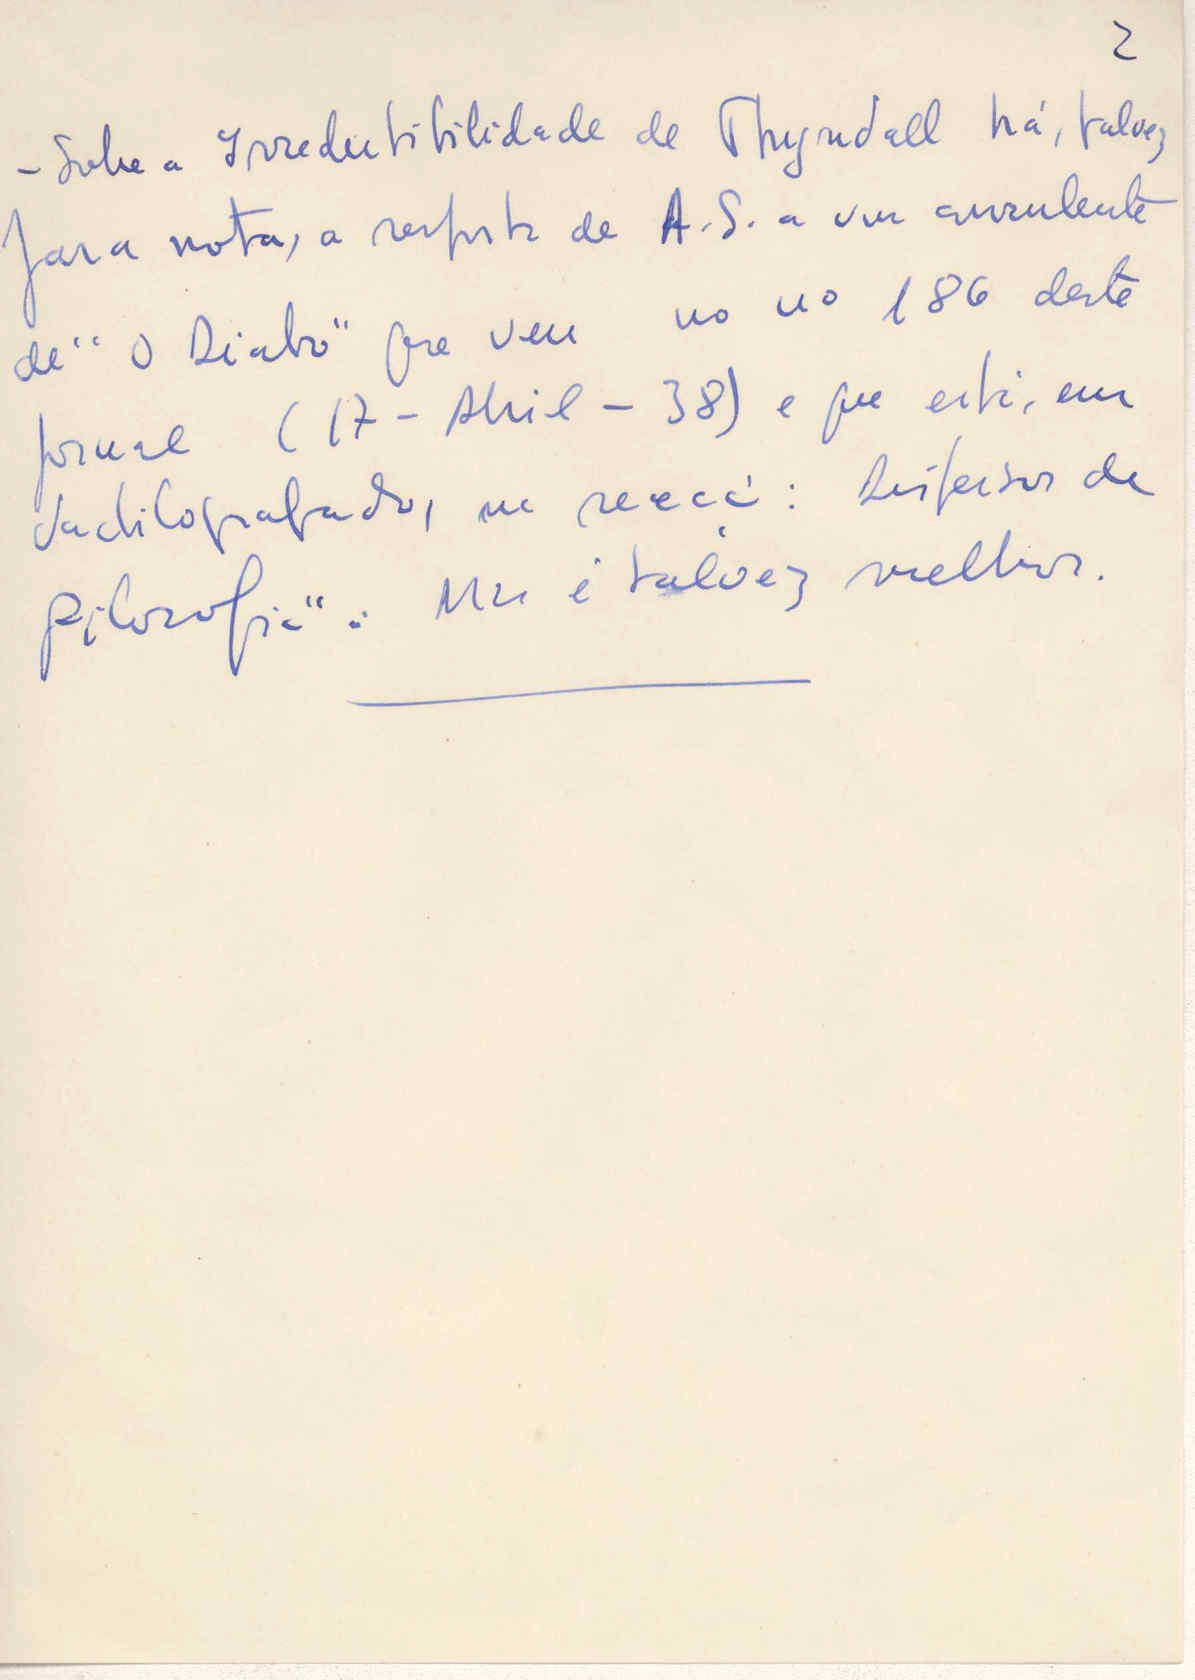 2
- Sobre a Irredutibilidade de Thyndall há, talvez
para nota, a resposta de A.S. a um
de "O Diabo" que vem no nº 186 deste
jornal (17-Abril-38) e que está, em
dactilografado, na secção: Dispersos de
Filosofia". Mas é talvez melhor.